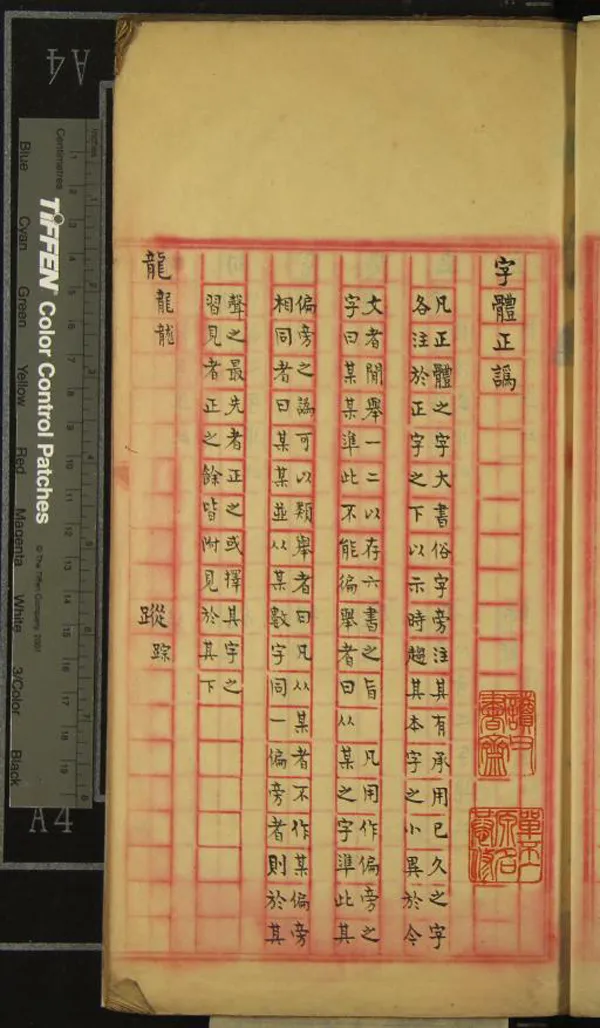 字體正譌
凡正體之字大書俗字旁注其有承用已久之字
各注於正字之下以示時趨其本字之小異於今
文者閒舉一二以存六書之旨　凡用作偏旁之
字曰某某準此不能徧舉者曰从某之字準此其
偏旁之譌可以類舉者曰凡从某者不作某偏旁
相同者曰某某並从某數字同一偏旁者則於其
聲之最先者正之或擇其字之
習見者正之餘皆附見於其下
龍 蹤踪
A4
TIFFEN Color Control Patches
© The Tiffen Company, 2007
Centimetres
Inches
1 2 3 4 5 6 7 8 9 10 11 12 13 14 15 16 17 18 19
Blue Cyan Green Yellow Red Magenta White 3/Color Black
A4